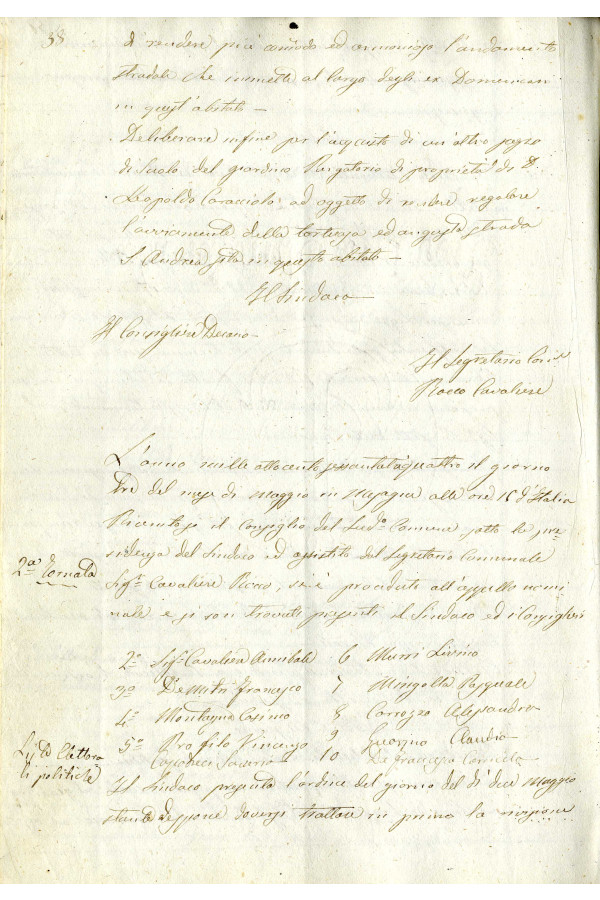 38
di rendere più comodo ed armonioso l'andamento
stradale che immette al largo degli ex Domenicani
in quest'abitato —
Deliberare infine per l'acquisto di un'altro pezzo
di suolo del giardino Purgatorio di proprietà di D.
Leopoldo Caracciolo, ad oggetto di rendere regolare
l'avviamento della tortuosa ed angusta strada
S. Andrea sita in questo abitato —
Il Sindaco
Il Consigliere Decano
Il Segretario Com.le
Rocco Cavaliere
L'anno mille ottocento sessantaquattro il giorno
tre del mese di Maggio in Mesagne alle ore 15 d'Italia
Riunitosi il Consiglio del Sud.o Comune, sotto la pre
2a Tornata
sidenza del Sindaco ed assistito dal Segretario Comunale
Sig.r Cavaliere Rocco, si è proceduto all'appello nomi
nale e si son trovati presenti il Sindaco ed i Consiglieri
2o Sig.r Cavaliere Annibale 6 Murri Livino
3o De Mitri Francesco 7 Mingolla Pasquale
4o Montagna Cosimo 8 Carrozzo Alessandro
5o Profilo Vincenzo 9 Guarino Claudio
Saverio 10 De Francesco Carmelo
Lista Elettora
li politiche
Il Sindaco presenta l'ordine del giorno del dì due Maggio
stante doversi trattare in primo la revisione